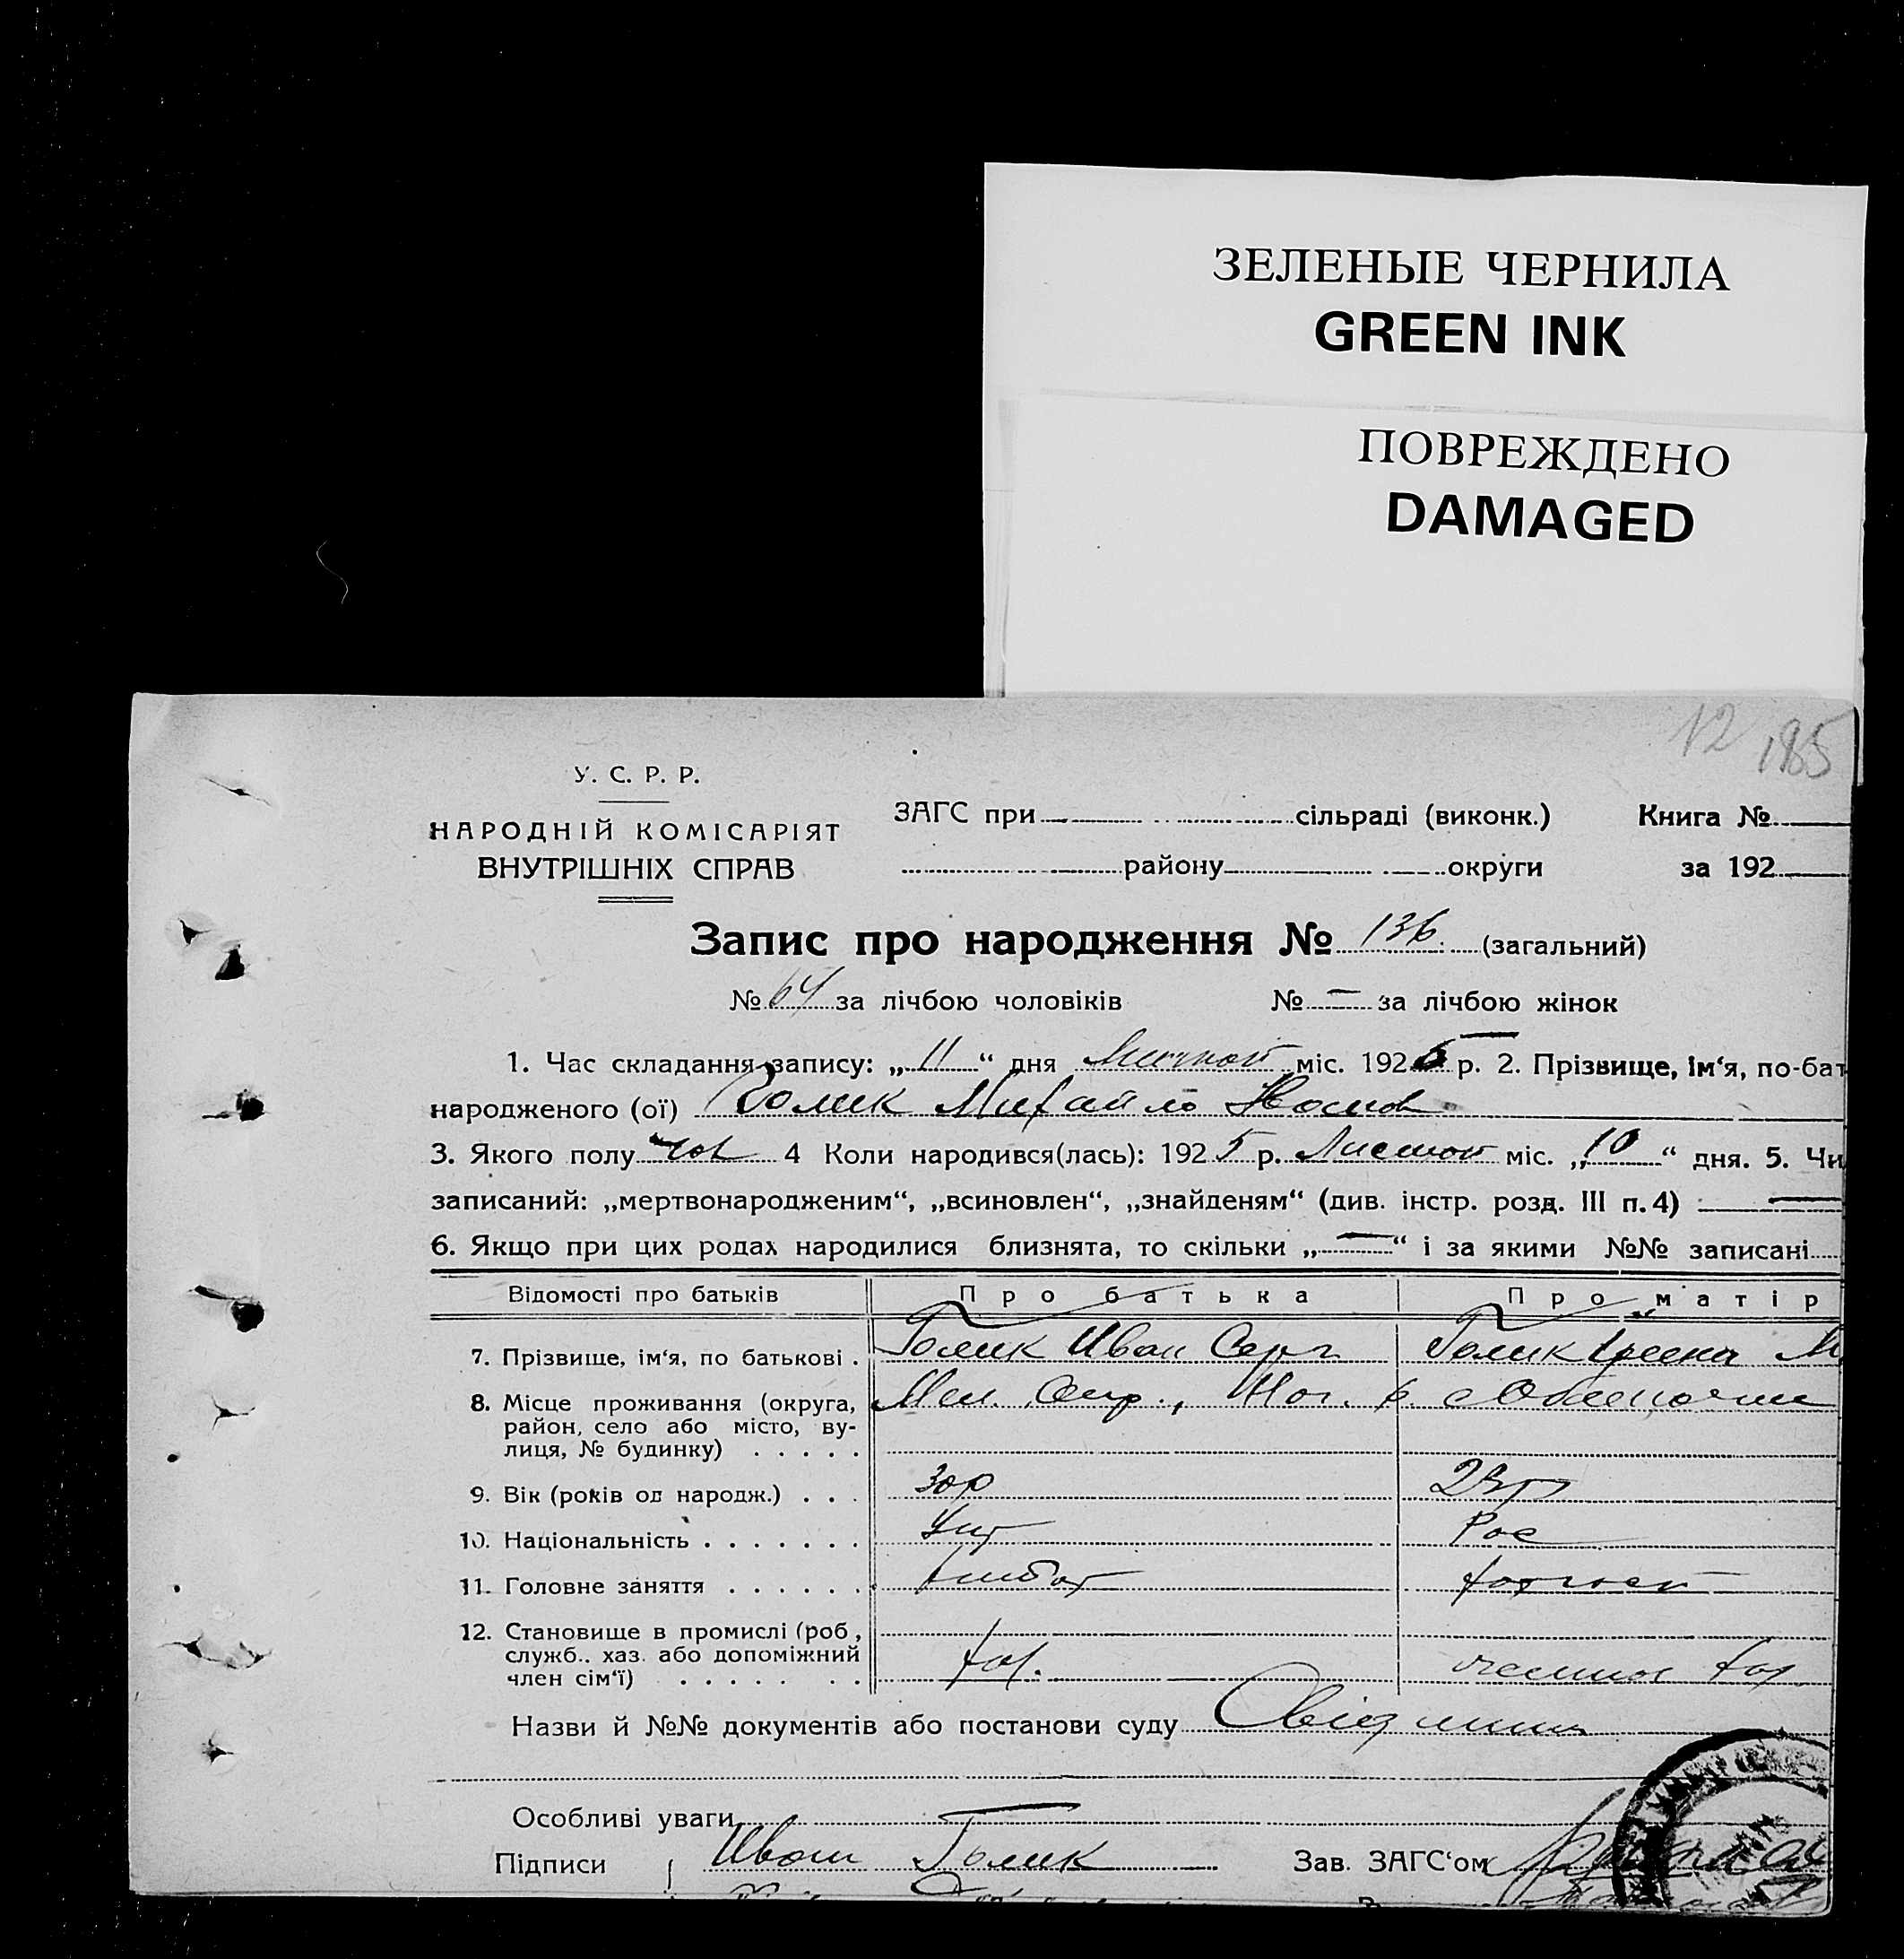 ЗЕЛЕНЫЕ ЧЕРНИЛА
GREEN INK
ПОВРЕЖДЕНО
DAMAGED
12 185
У. С. Р. Р.
НАРОДНІЙ КОМІСАРІЯТ
ВНУТРІШНІХ СПРАВ
ЗАГС при сільраді (виконк.) Книга №
району округи за 192
Запис про народження № 136 (загальний)
№ 64 за лічбою чоловіків № — за лічбою жінок
1. Час складання запису: „11“ дня міс. 1925 р. 2. Прізвище, ім‘я, по-бат
народженого (ої) Голик Михайло
3. Якого полу чол 4 Коли народився(лась): 1925 р. міс. „10“ дня. 5. Чи
записаний: „мертвонародженим“, „всиновлен“, „знайденям“ (див. інстр. розд. III п. 4) —
6. Якщо при цих родах народилися близнята, то скільки „—“ і за якими №№ записані
Відомості про батьків Про батька Про матір
7. Прізвище, ім‘я, по батькові . Голик Иван Серг Голик М
8. Місце проживання (округа, Мел. Окр., р. с
район, село або місто, ву-
лиця, № будинку) . . . . .
9. Вік (років од народж.) . . . 30р 23р
10. Національність . . . . . . . Укр Рос
11. Головне заняття . . . . . . хлібор
12. Становище в промислі (роб,
служб.. хаз. або допоміжний
член сім‘ї) . . . . . . . хаз.
Назви й №№ документів або постанови суду
Особливі уваги
Підписи Иван Голик Зав. ЗАГС‘ом